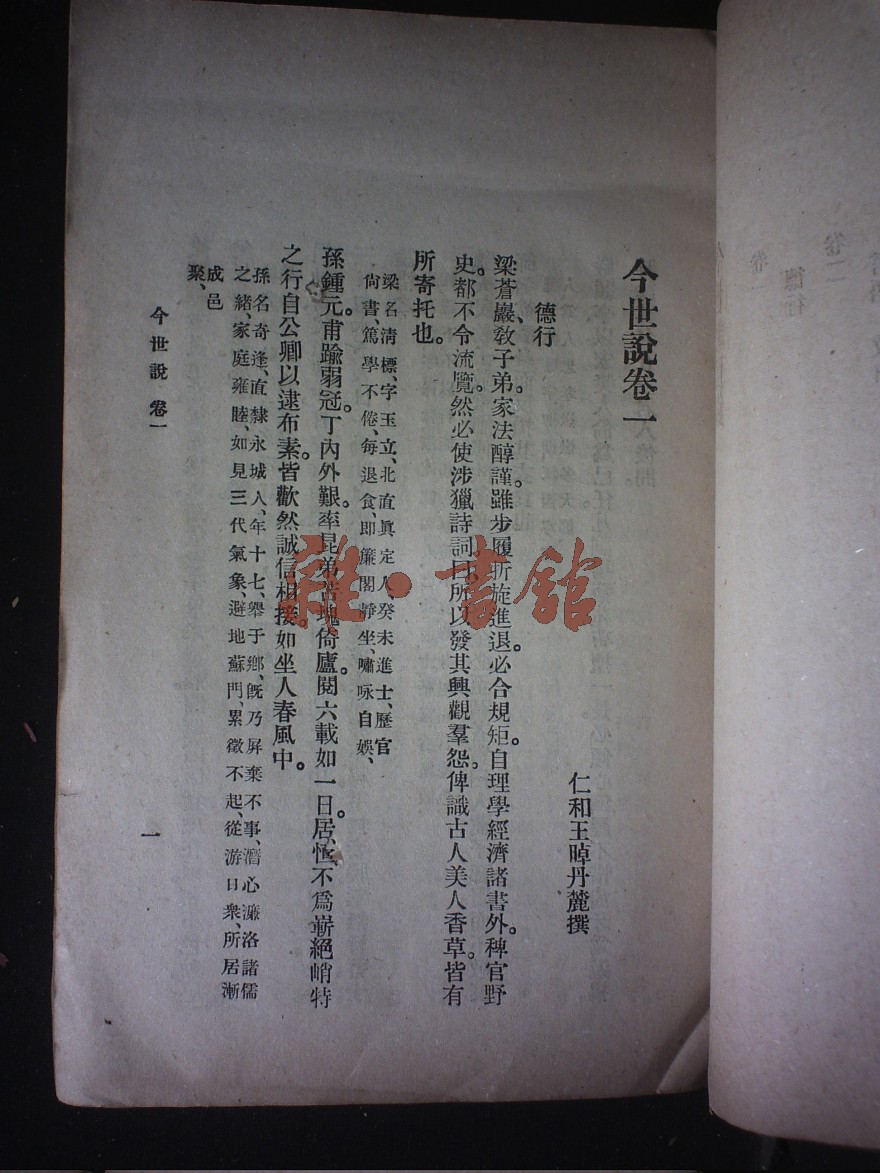 今世說卷一
仁和王晫丹麓撰
德行
梁蒼巖、敎子弟。家法醇謹。雖步履折旋進退。必合規矩。自理學經濟諸書外。稗官野
史。都不令流覽。然必使涉獵詩詞。曰所以發其興觀羣怨。俾識古人美人香草。皆有
所寄托也。
梁名淸標、字玉立、北直眞定人、癸未進士、歷官
尙書、篤學不倦、每退食、卽簾閣靜坐、嘯咏自娛、
孫鍾元。甫踰弱冠。丁內外艱。率昆弟苫塊倚廬。閱六載如一日。居恆、不爲嶄絕峭特
之行自公卿以逮布素。皆歡然誠信相接。如坐人春風中。
孫名奇逢、直隸永城人、年十七、舉于鄉、旣乃屛棄不事、潛心濂洛諸儒
之緒、家庭雍睦、如見三代氣象、避地蘇門、累徵不起、從游日衆、所居漸
成邑
聚、
今世說 卷一
一
雜·書館
卷二
德行
卷